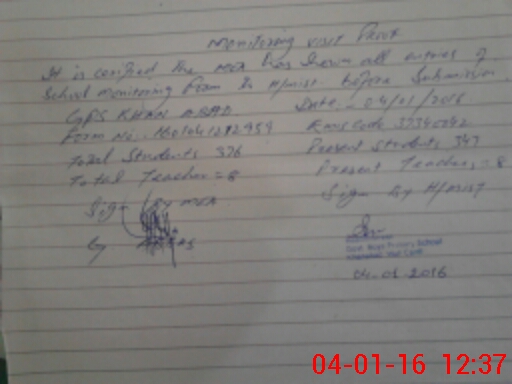 Monitoring visit Proof
It is cerified the MEA has shown all entries of
School monitoring Form to H/mist. before Submission
GPS KHAN ABAD Date:- 04/01/2016
Form No:- Emis Code
Total Students 376 Present Students 347
Total Teacher = 8 Present Teachers = 8
Sign by MEA Sign By H/mist
by
Govt. Boys Primary School
04.01.2016
04-01-16 12:37